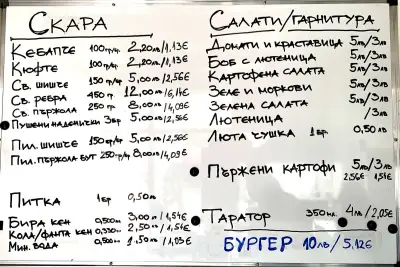 Скара
Кебапче 100гр/ф 2,20лв/1,13€
Кюфте 100гр/ф 2,20лв/1,13€
Св. шишче 150гр/ф 5,00лв/2,56€
Св. ребра 450гр 12,00лв/6,14€
Св. пържола 250гр 8,00лв/4,09€
Пушени наденички 3бр 5,00лв/2,56€
Пил. шишче 150гр/ф 5,00лв/2,56€
Пил. пържола бут 250гр/ф 8,00лв/4,09€
Питка 1бр 0,50лв
Бира кен 0,500мл 3,00лв/1,54€
Кола/фанта кен 0,330мл 2,50лв/1,54€
Мин. вода 0,500мл 1,50лв/1,03€
Салати/гарнитура
Домати и краставица 5лв/3лв
Боб с лютеница 5лв/3лв
Картофена салата 5лв/3лв
Зеле и моркови 5лв/3лв
Зелена салата 5лв/3лв
Лютеница /3лв
Люта чушка 1бр 0,50лв
Пържени картофи 5лв/3лв
2,56€ 1,54€
Таратор 350мл 4лв/2,05€
Бургер 10лв/5,12€